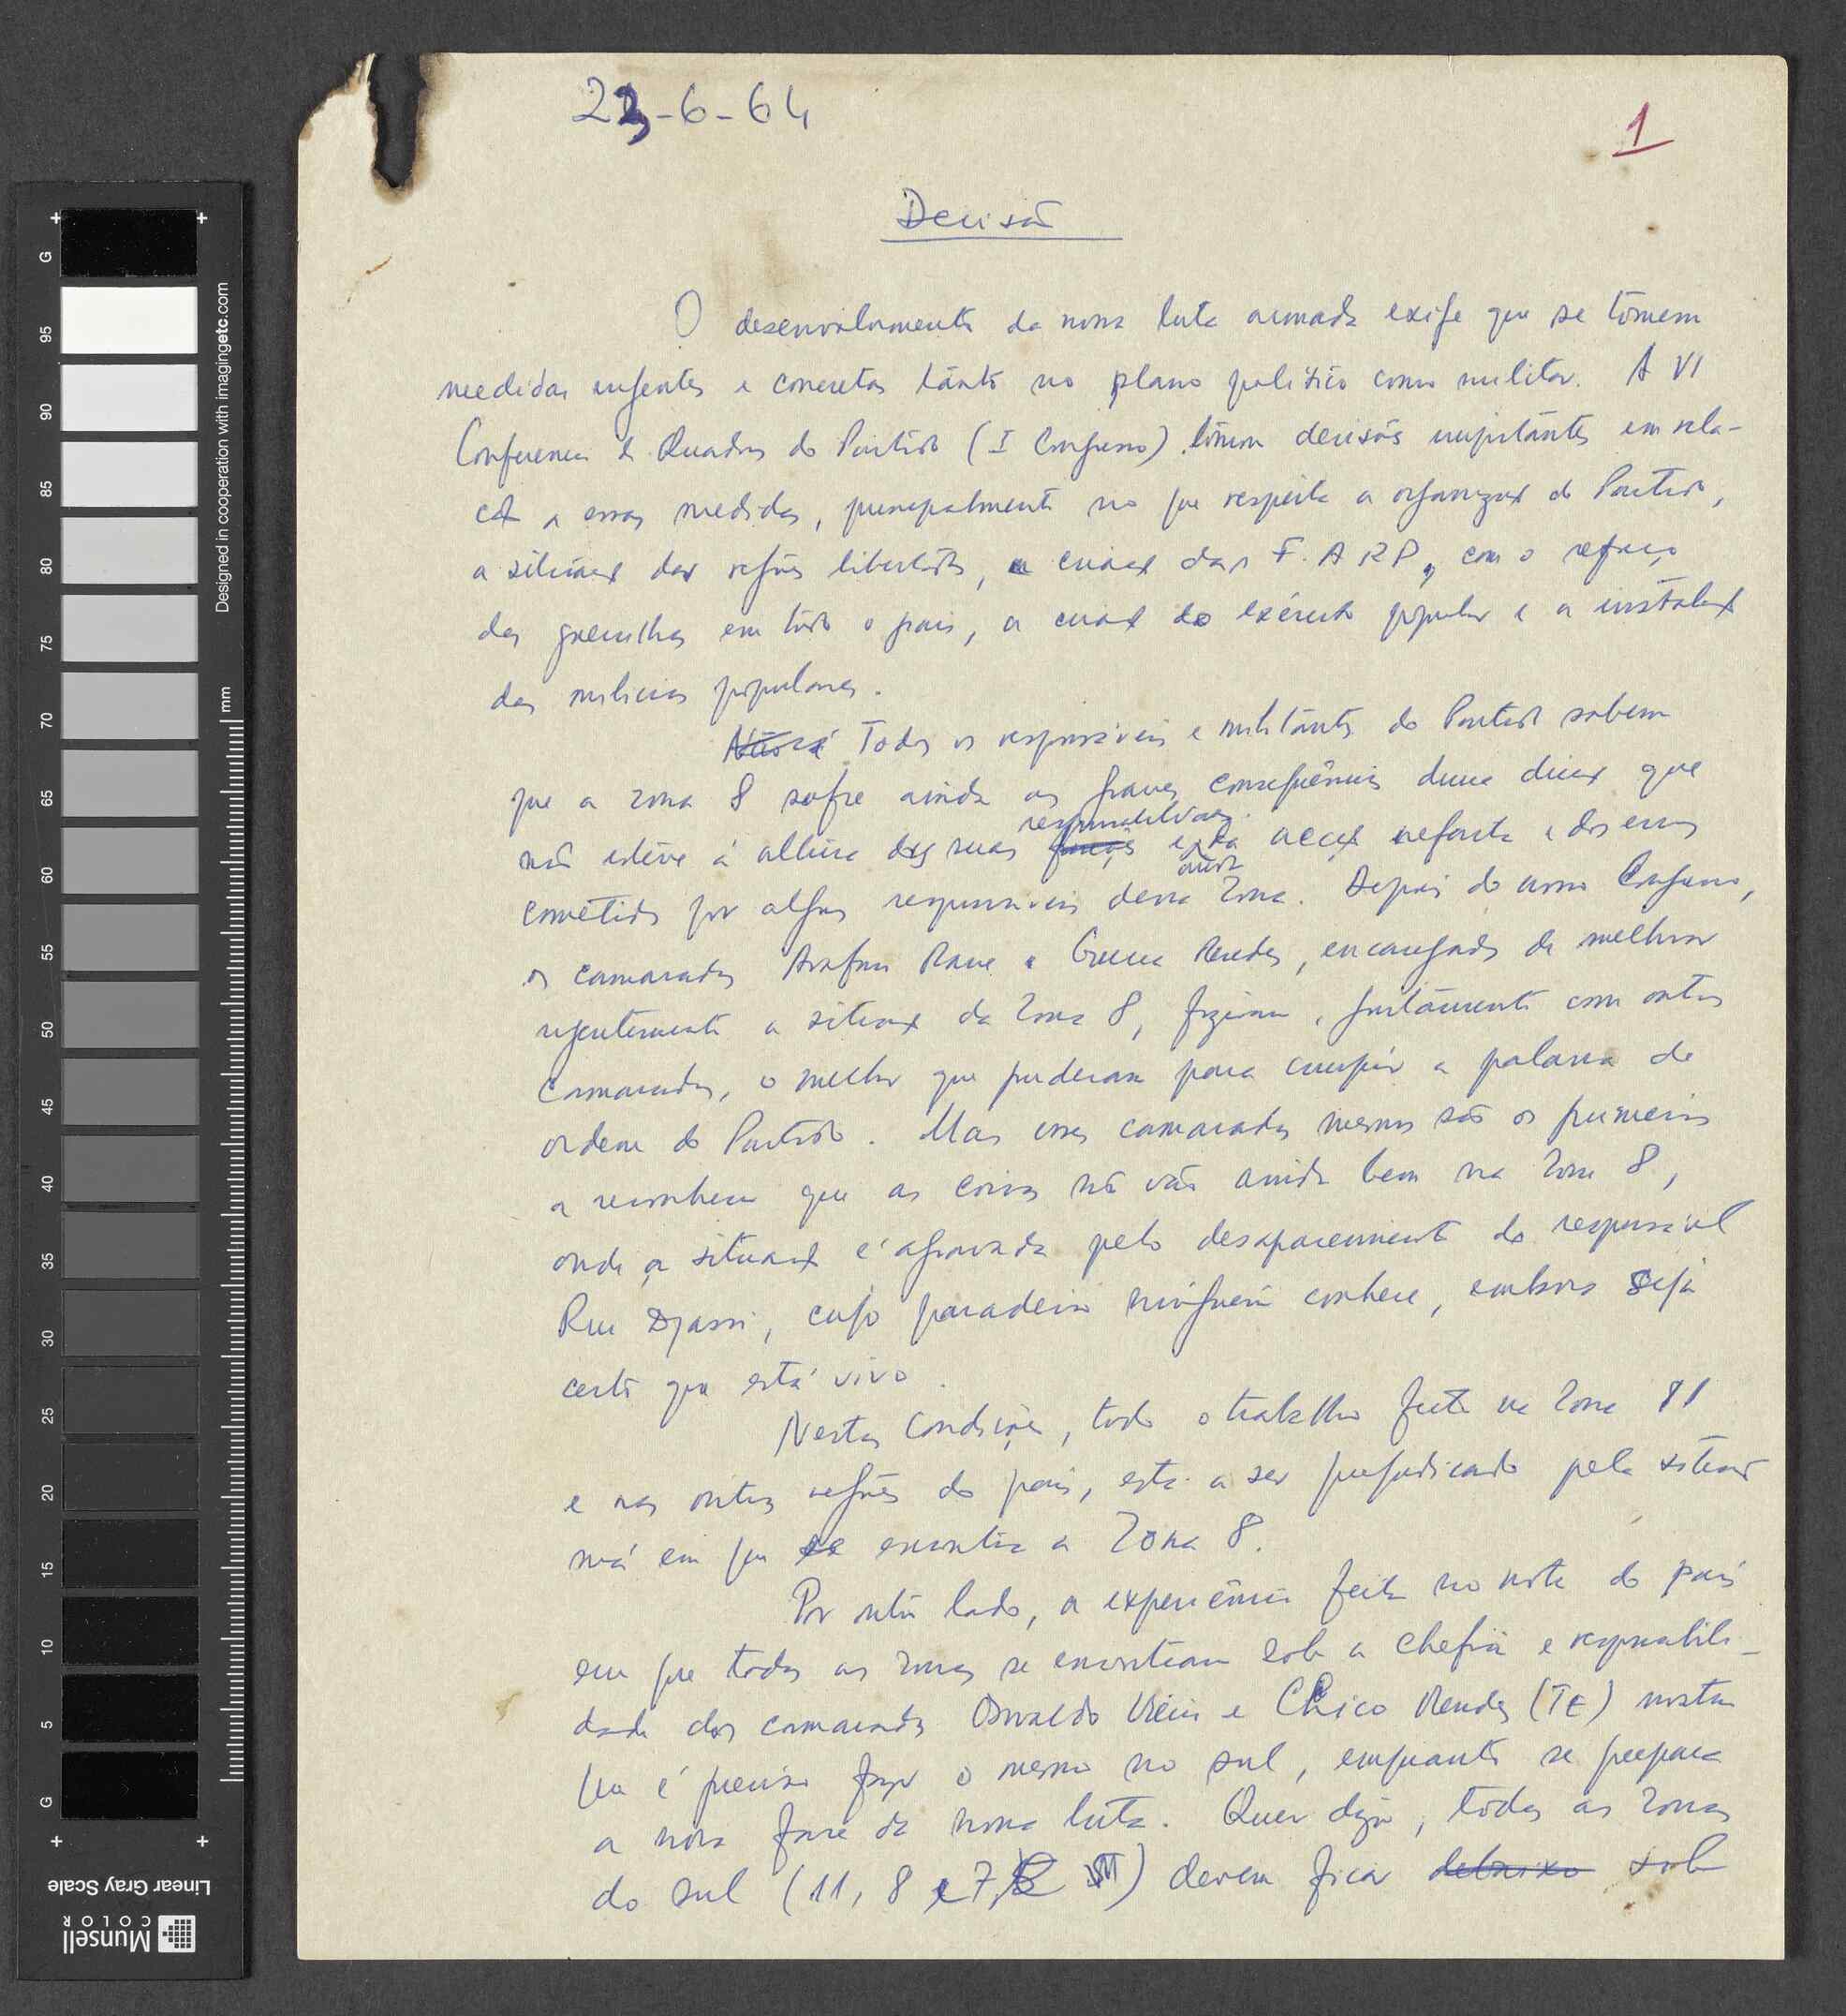 23-6-64
1
Decisão
O desenvolvimento da nossa luta armada exige que se tomem
medidas urgentes e concretas tanto no plano político como militar. A VI
Conferencia de Quadros do Partido (I Congresso) tomou decisões importantes em rela-
ção a essas medidas, principalmente no que respeita a organização do Partido,
a situação das regiões libertadas, a criação das F.A.R.P., com o reforço
das guerrilhas em todo o país, a criação do exército popular e a instalação
das milícias populares.
Não é Todos os responsáveis e militantes do Partido sabem
que a zona 8 sofre ainda as graves consequências duma direcção que
não esteve à altura das suas funções responsabilidades e da acção nefasta e dos erros
cometidos por alguns responsáveis dessa zona. Depois do nosso Congresso,
os camaradas Arafam Mane e Guerra Mendes, encarregados de melhorar
urgentemente a situação da Zona 8, fizeram, juntamente com outros
camaradas, o melhor que puderam para cumprir a palavra de
ordem do Partido. Mas esses camaradas mesmos são os primeiros
a reconhecer que as coisas não vão ainda bem na Zona 8,
onde a situação é agravada pelo desaparecimento do responsável
Rui Djassi, cujo paradeiro ninguém conhece, embora seja
certo que está vivo.
Nestas condições, todo o trabalho feito na Zona 11
e nas outras regiões do país, está a ser prejudicado pela situação
má em que se encontra a Zona 8.
Por outro lado, a experiência feita no norte do país
em que todas as zonas se encontram sob a chefia e responsabili-
dade dos camaradas Osvaldo Vieira e Chico Mendes (TE) mostra
que é preciso fazer o mesmo no sul, enquanto se prepara
a nova fase da nossa luta. Quer dizer, todas as zonas
do sul (11, 8 e 7) devem ficar debaixo sob
Designed in cooperation with imagingetc.com
mm
G
95
90
85
80
75
70
65
60
55
50
45
40
35
30
25
20
15
10
5
G
Linear Gray Scale
Munsell
COLOR